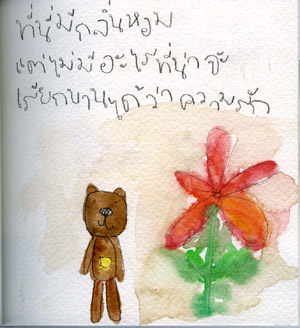 ที่นี่มีกลิ่นหอม
แต่ไม่มีอะไรที่น่าจะ
เรียกขานได้ว่าความรัก